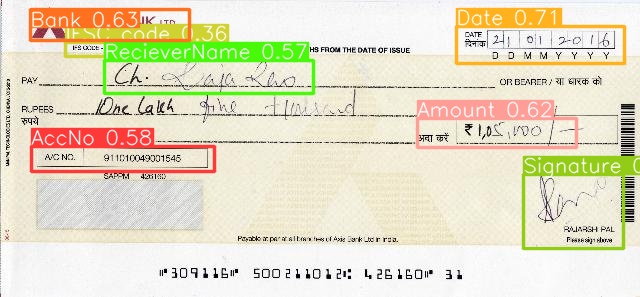 Bank 0.63 LTD
IFSC code 0.36 Date 0.71
IFS CODE - HS FROM THE DATE OF ISSUE
DATE दिनांक 21012016
D D M M Y Y Y Y
RecieverName 0.57
PAY Ch. Raja Rao OR BEARER / या धारक को
RUPEES रुपये One Lakh five thousand
Amount 0.62
अदा करें ₹ 1,05,000/-
AccNo 0.58
A/C NO. 911010049001545
SAPPM 426160
Signature 0
RAJARSHI PAL
Please sign above
Payable at par at all branches of Axis Bank Ltd in India.
⑈309116⑈ 500211012⑆ 426160⑈ 31